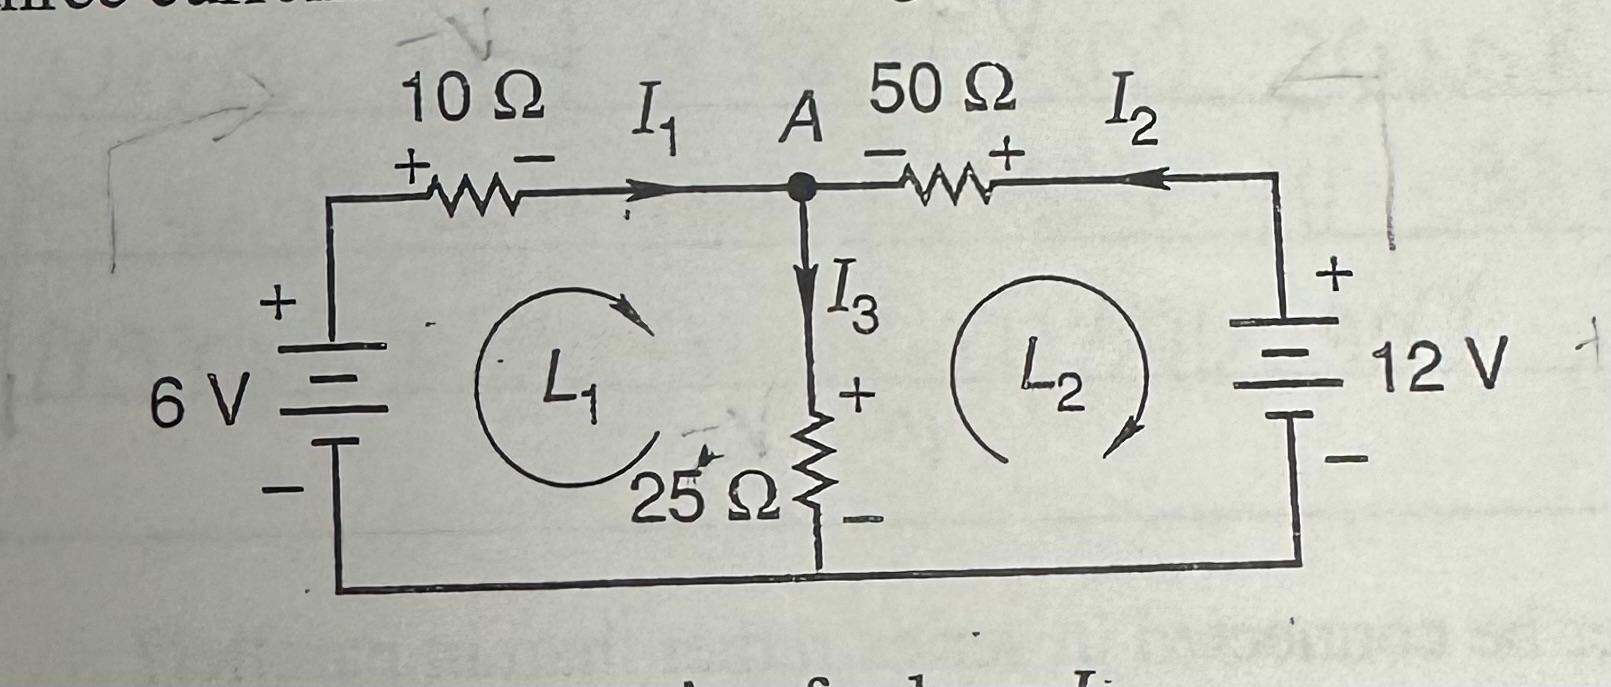 10 Ω I₁ A 50 Ω I₂
+ − − +
+ I₃ +
6 V L₁ + L₂ 12 V
− 25 Ω − −